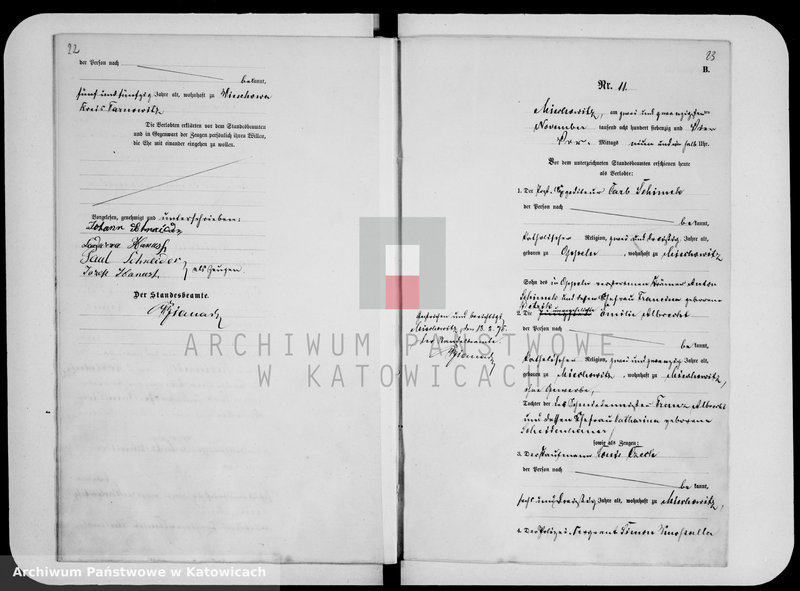 22
der Person nach
be kannt,
fünf und fünfzig Jahre alt, wohnhaft zu Wieschowa
Kreis Tarnowitz
Die Verlobten erklärten vor dem Standesbeamten
und in Gegenwart der Zeugen persönlich ihren Willen,
die Ehe mit einander eingehen zu wollen.
Vorgelesen, genehmigt und unterschrieben:
Johann
Hanash
Paul Schneider
Josef Hanash als Zeugen
Der Standesbeamte.
23
B.
Nr. 11.
Miechowitz, am zwei und zwanzigsten
November tausend acht hundert siebenzig und Vier
Vor- Mittags neun und ein halb Uhr.
Vor dem unterzeichneten Standesbeamten erschienen heute
als Verlobte:
1. Der Post-Expediteur Carl Schimek
der Person nach
be kannt,
katholischer Religion, zwei und dreißig Jahre alt,
geboren zu Oppeln, wohnhaft zu Miechowitz
Sohn des in Oppeln verstorbenen Krämer Anton
Schimek und dessen Ehefrau Francisca geborene
2. Die Emilie Albrecht
der Person nach
be kannt,
katholischer Religion, zwei und zwanzig Jahre alt,
geboren zu Miechowitz, wohnhaft zu Miechowitz,
ohne Gewerbe,
Tochter der des Schmiedemeister Franz Albrecht
und dessen Ehefrau Catharina geborene
sowie als Zeugen:
3. Der Kaufmann Louis Czech
der Person nach
be kannt,
sechs und dreißig Jahre alt, wohnhaft zu Miechowitz,
4. Der Polizei-Sergeant Simon
und berichtigt
Miechowitz, den 13. 2. 75.
Der Standesbeamte.
ARCHIWUM PAŃSTWOWE
W KATOWICACH
Archiwum Państwowe w Katowicach